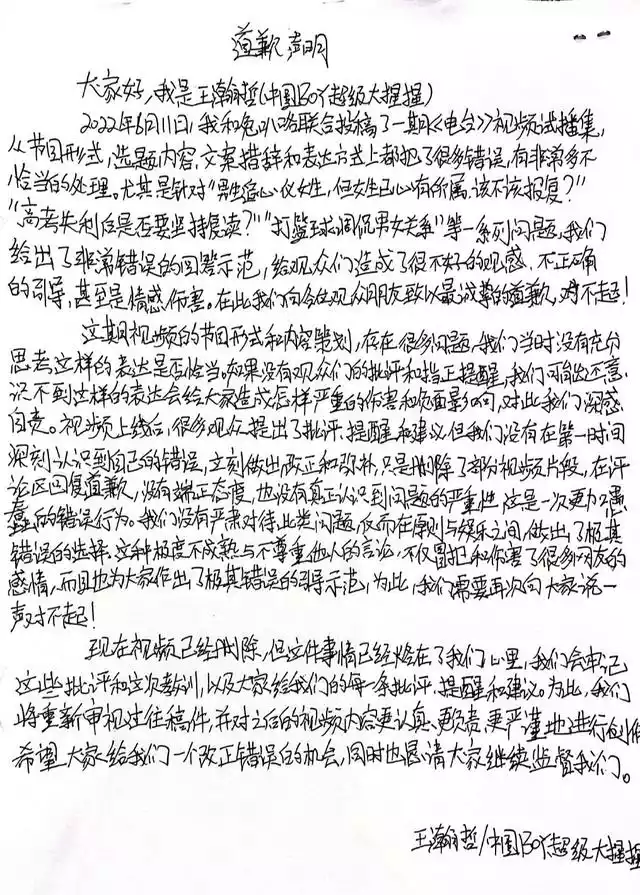 道歉声明
大家好,我是王瀚哲(中国BOY超级大猩猩)
2022年6月11日,我和兔叭咯联合投稿了一期《电台》视频试播集,
从节目形式,选题内容,文案措辞和表达方式上都犯了很多错误,有非常多不
恰当的处理。尤其是针对“男生追心仪女生,但女生已心有所属,该不该报复?”
“高考失利后是否要坚持复读?”“打篮球调侃男女关系”等一系列问题,我们
给出了非常错误的回答示范,给观众们造成了很不好的观感,不正确
的引导,甚至是情感伤害。在此我们向各位观众朋友致以最诚挚的道歉,对不起!
这期视频的节目形式和内容策划,存在很多问题,我们当时没有充分
思考这样的表达是否恰当。如果没有观众们的批评和指正提醒,我们可能还意
识不到这样的表达会给大家造成怎样严重的伤害和负面影响,对此我们深感
自责。视频上线后,很多观众提出了批评,提醒和建议但我们没有在第一时间
深刻认识到自己的错误,立刻做出改正和弥补,只是删除了部分视频片段,在评
论区回复道歉,没有端正态度,也没有真正认识到问题的严重性,这是一次更加愚
蠢的错误行为。我们没有严肃对待此类问题,反而在原则与娱乐之间,做出了极其
错误的选择,这种极度不成熟与不尊重他人的言论,不仅冒犯和伤害了很多网友的
感情,而且也为大家作出了极其错误的引导示范,为此,我们需要再次向大家说一
声对不起!
现在视频已经删除,但这件事情已经烙在了我们心里,我们会牢记
这些批评和这次教训,以及大家给我们的每一条批评,提醒和建议。为此,我们
将重新审视过往稿件,并对之后的视频内容更认真,更负责,更严谨地进行创作
希望大家给我们一个改正错误的机会,同时也恳请大家继续监督我们。
王瀚哲/中国BOY超级大猩猩